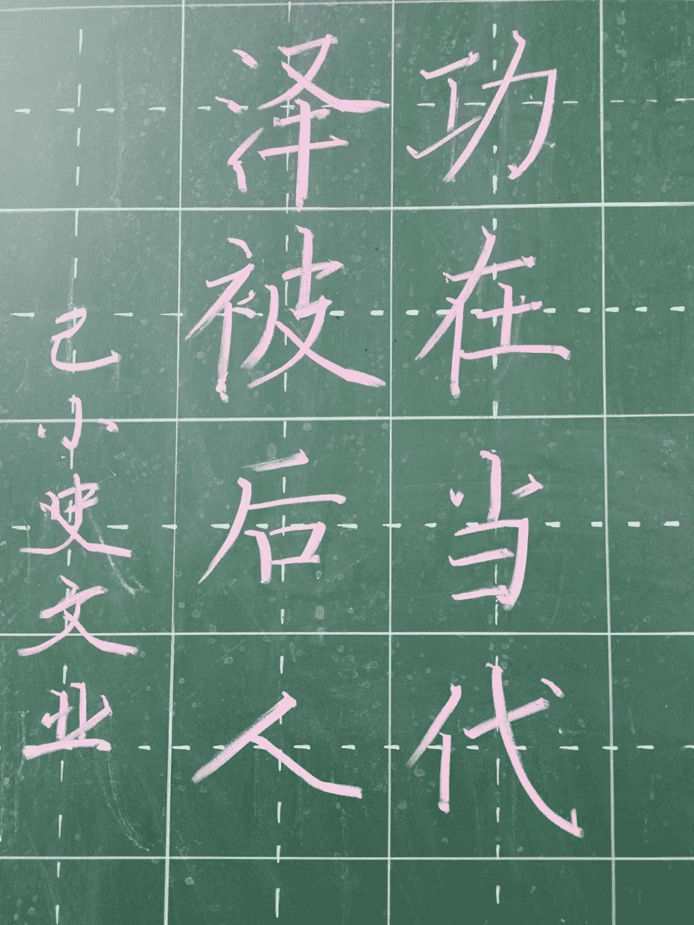 功在当代
泽被后人
己小史文业